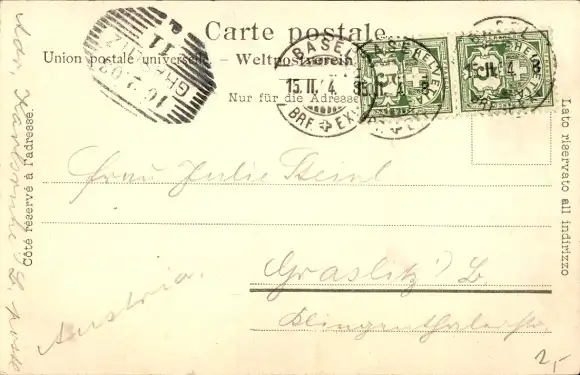 Carte postale.
Union postale universelle. - Weltpostverein.
Nur für die Adresse
Côté réservé à l'adresse.
Lato riservato all indirizzo
BASEL
15.II. 4. 8
BRF. EXP.
GRASLITZ
11
HELVETIA
5
HELVETIA
5
Frau Julie Steinl
Graslitz i/B.
Klingenthalerstr.
Austria.
Adr.
2,-